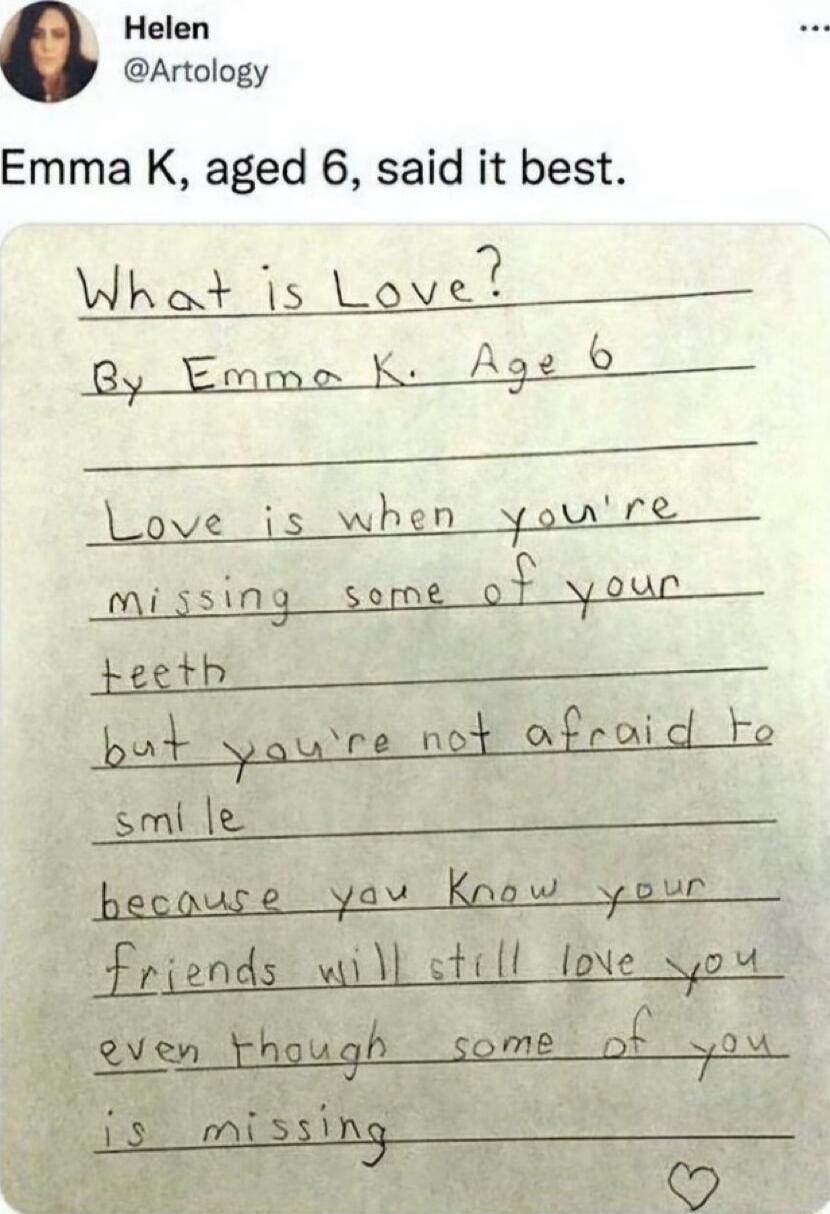 Helen
@Artology
Emma K, aged 6, said it best.
What is Love?
By Emma K. Age 6
Love is when you're
missing some of your
teeth
but you're not afraid to
smile
because you know your
friends will still love you
even though some of you
is missing